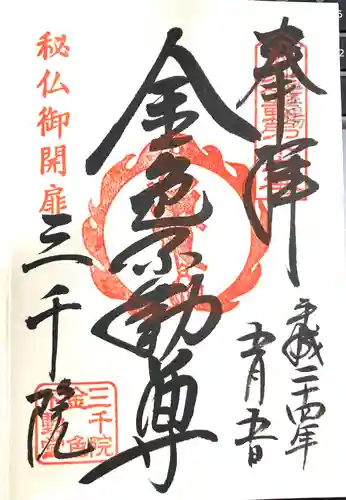 奉拝
平成二十四年
五月五日
金色不動尊
秘仏御開扉
三千院
三千院
金色